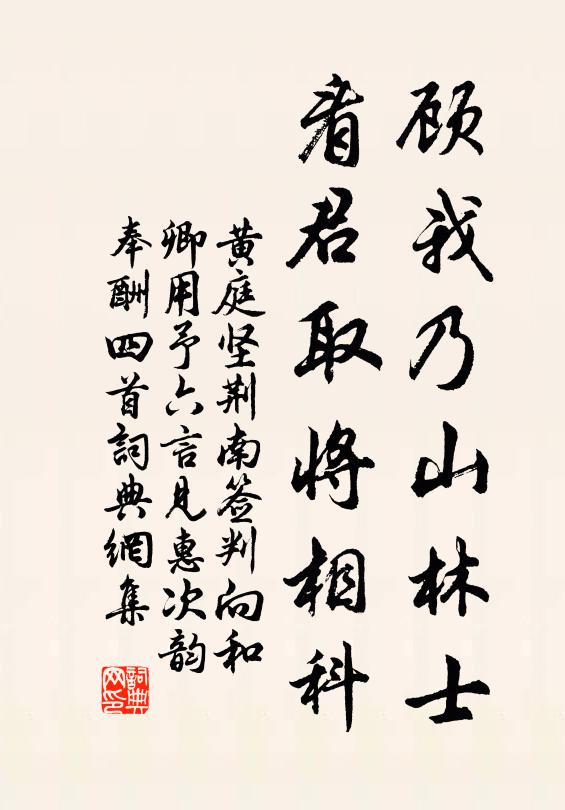 顾我乃山林士
看君取将相科
黄庭坚荆南签判向和
卿用予六言见惠次韵
奉酬四首詞典網集
詞典
网印